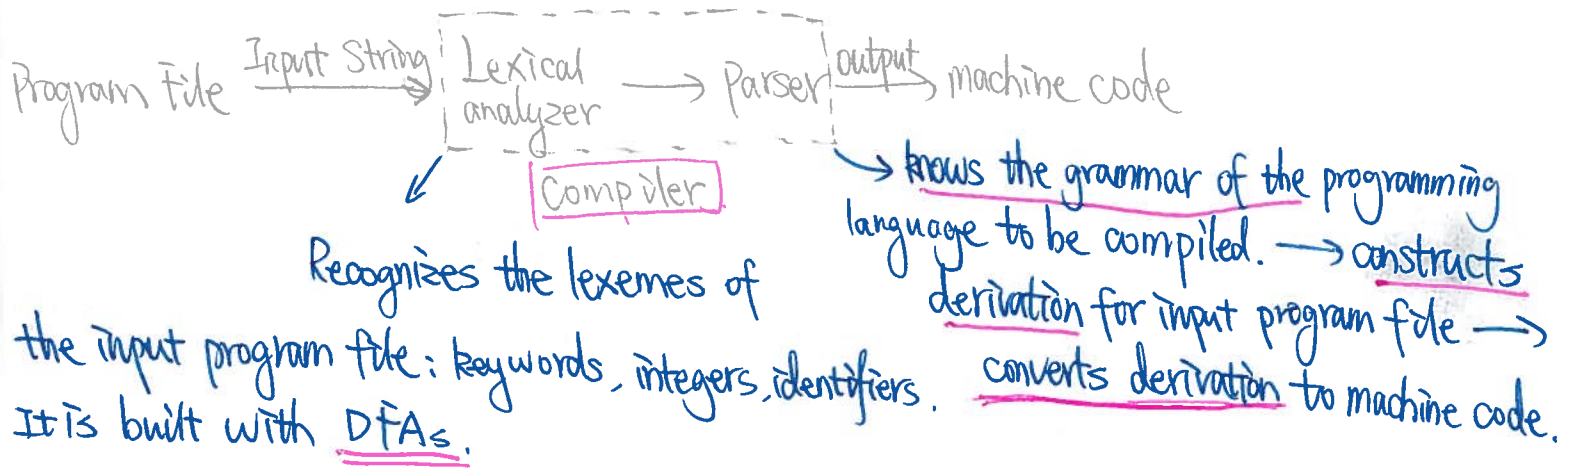 Program File Input String Lexical analyzer Parser output machine code
Compiler
Recognizes the lexemes of
the input program file: keywords, integers, identifiers.
It is built with DFAs.
knows the grammar of the programming
language to be compiled. → constructs
derivation for input program file →
converts derivation to machine code.